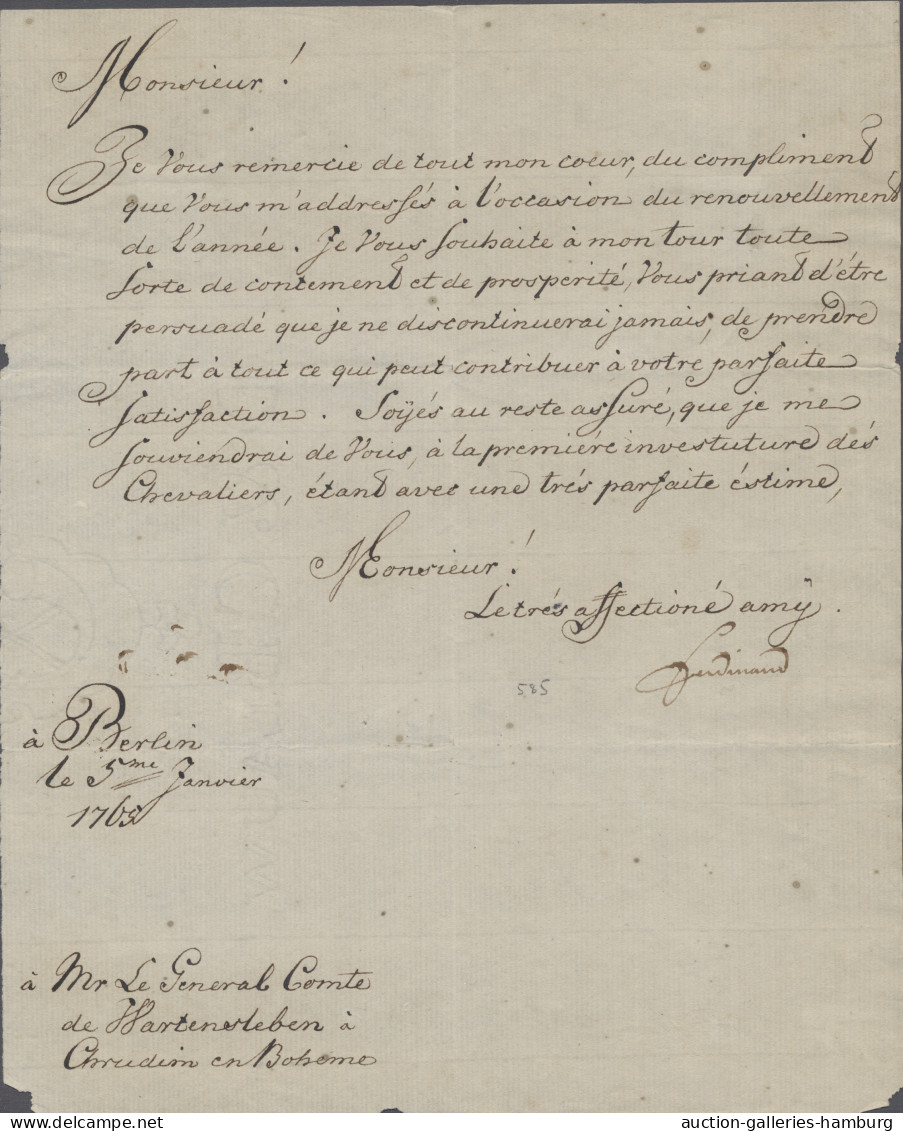 Monsieur!
Je Vous remercie de tout mon coeur, du compliment
que Vous m'addressés à l'occasion du renouvellement
de l'année. Je Vous souhaite à mon tour toute
sorte de contement et de prosperité, Vous priant d'étre
persuadé que je ne discontinuerai jamais, de prendre
part à tout ce qui peut contribuer à votre parfaite
satisfaction. Soÿés au reste assuré, que je me
souviendrai de Vous, à la premiére investuture dés
Chevaliers, étant avec une trés parfaite éstime,
Monsieur!
Le trés affectioné amÿ.
Ferdinand
585
à Berlin
le 5me Janvier
à Mr Le General Comte
de Wartensleben à
Chrudim en Boheme
auction-galleries-hamburg